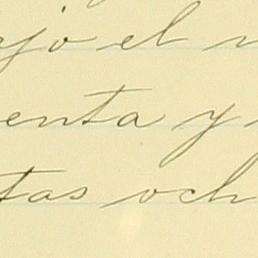 ajo el n
enta y
tas och